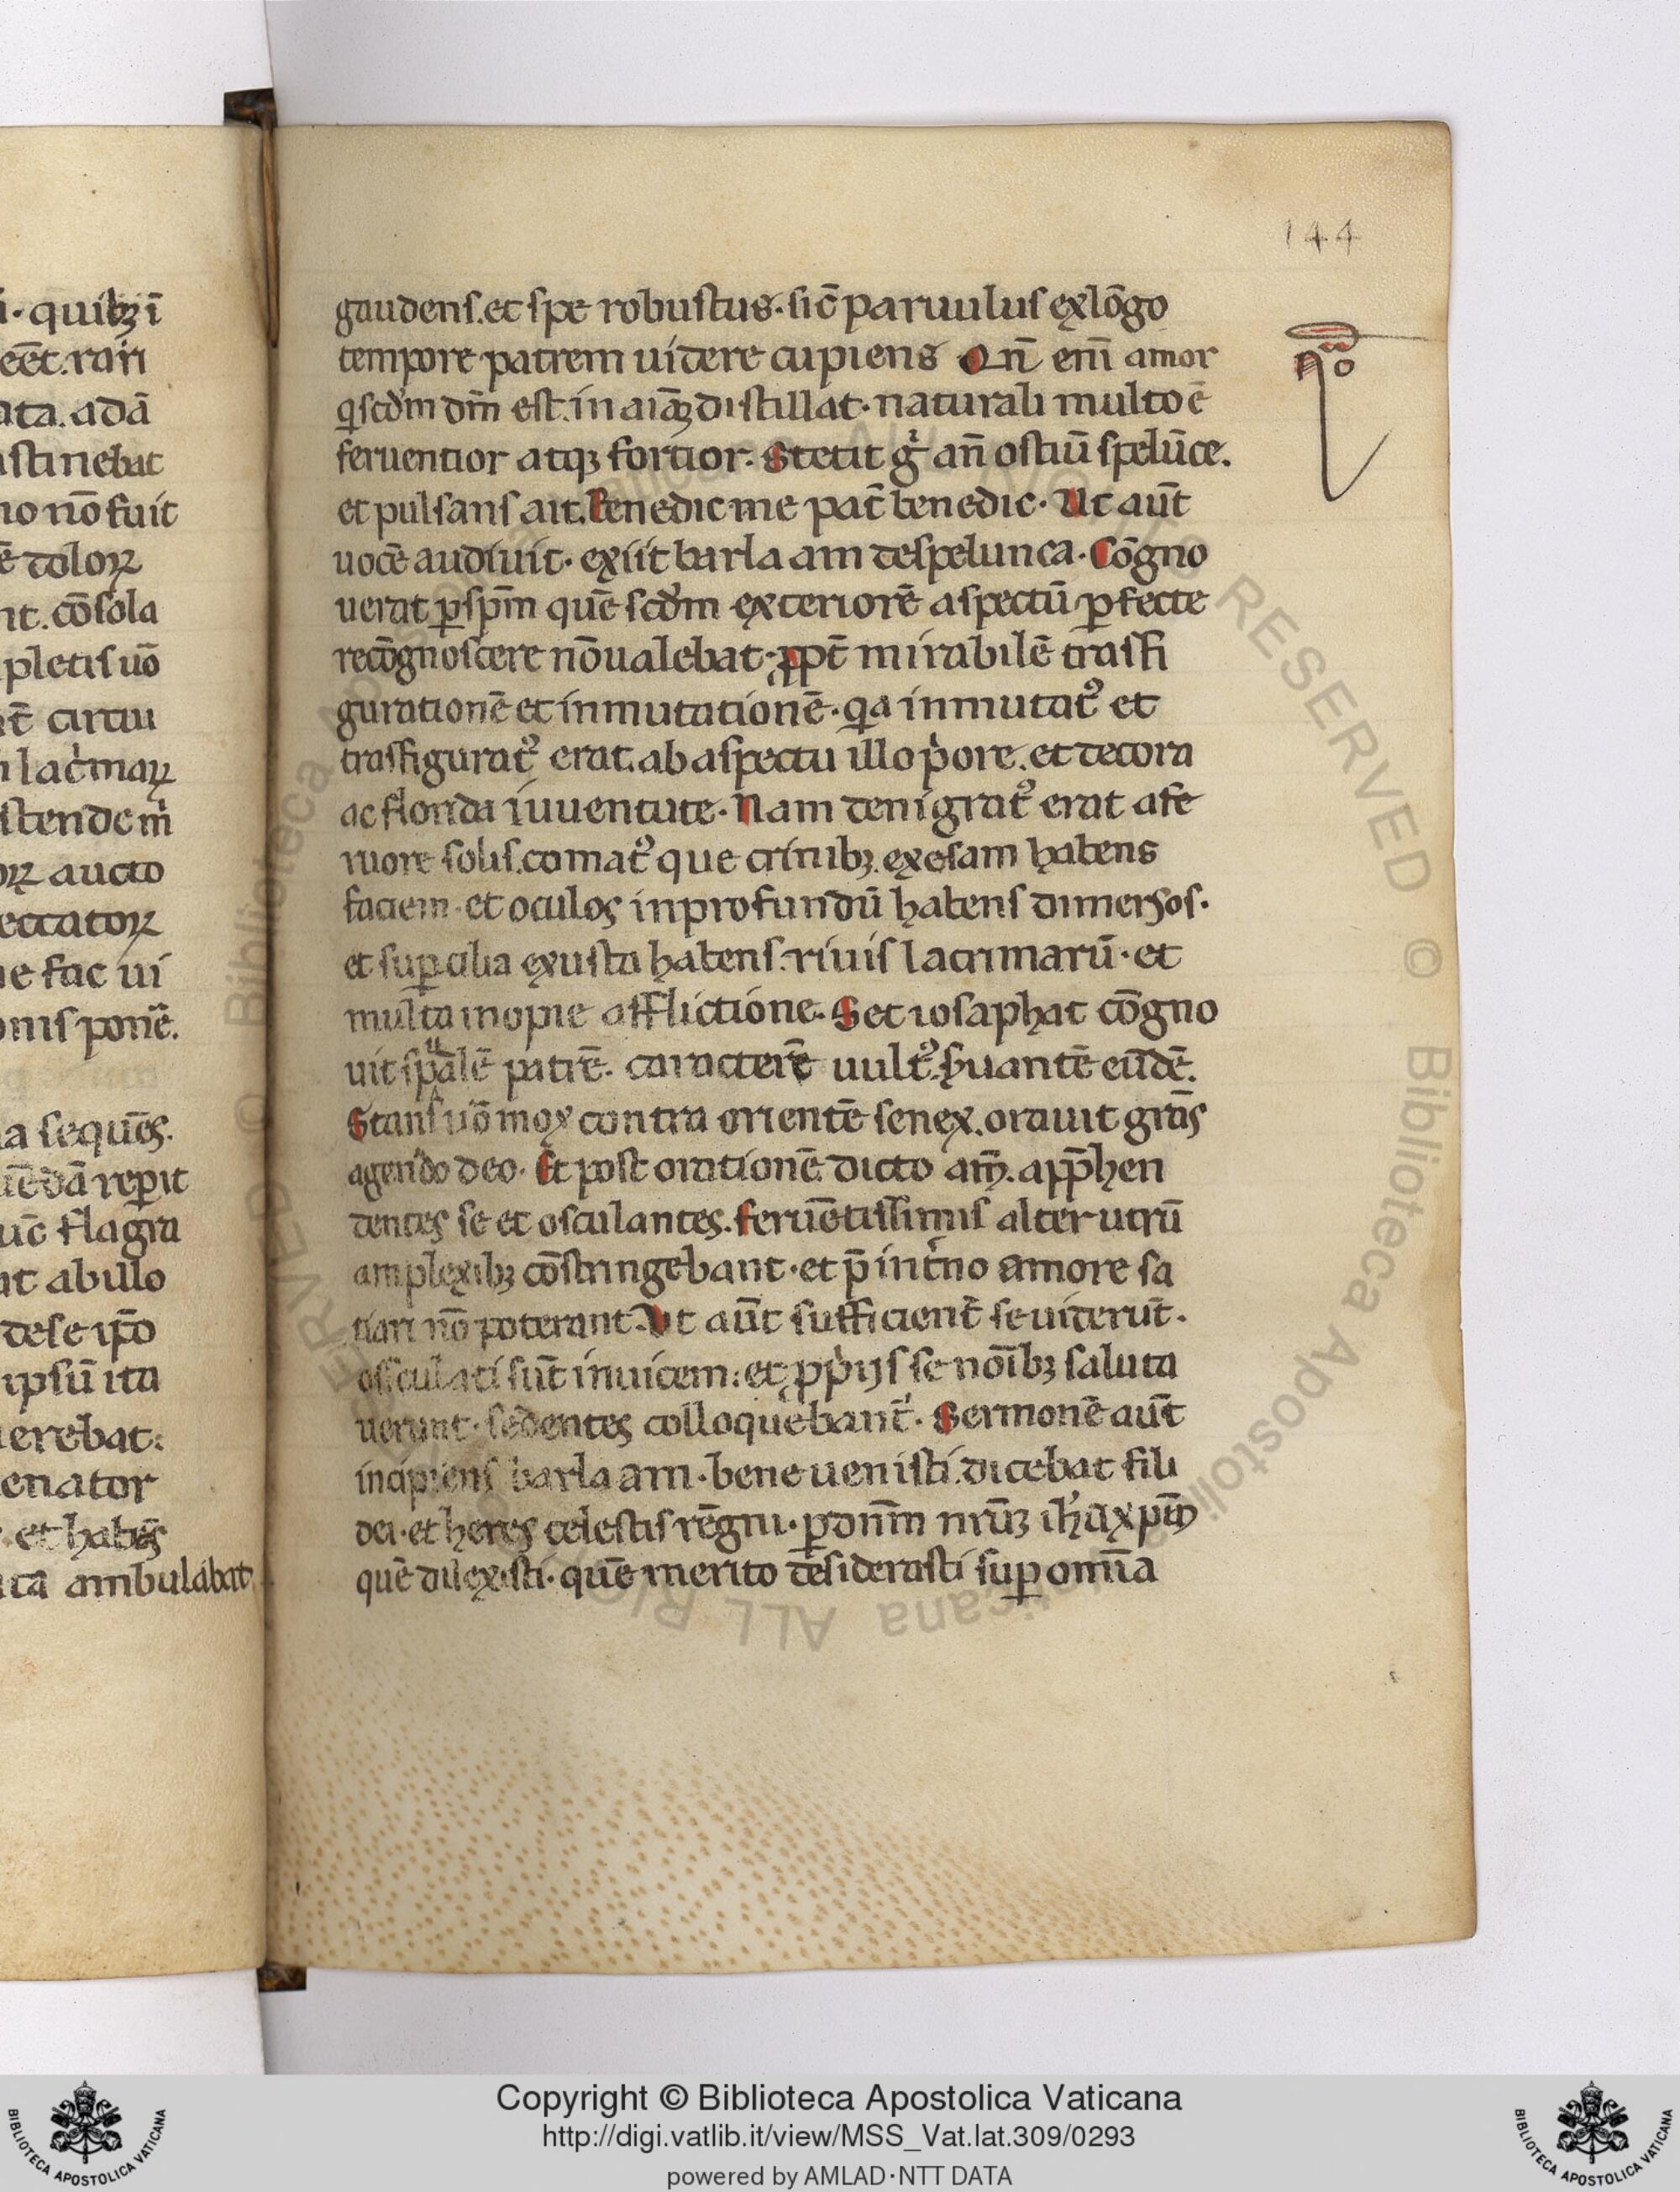 ı̄· quibꝫ ı̄
eēt. rari
ata. adā
stinebat
no nō fuit
ē doloꝝ
nt. cōsola
pletis uō
t̄ circui
lac̓maꝝ
stende m̓
oꝝ aucto
eccatoꝝ
e fac ui
onis ponē.
a sequēs.
uēdā rep̱it
uc̄ flagra
at ab illo
de se ip̄o
ipsū ita
erebat:
enator
et habēs
ita ambulabat
144
gaudens. et spe robustus. sic̄ paruulus ex lōgo
tempore patrem uidere cupiens Qn̄ eni̅ amor
q̱ scd̓m dm̄ est. in aīaꝫ distillat. naturali multo ē
feruentior atqꝫ fortior. Stetit g̓ an̄ ostiū spelūce.
et pulsans ait. Benedic me pat̄ benedic. Ut aūt
uocē audiuit. exiit barlaam de spelunca. Cōgno
uerat ꝑ spm̄ quē scd̓m exteriorē aspectū ꝑfecte
recōgnoscere nō ualebat. ꝓpt̄ mirabilē trasfi
gurationē et inmutationē. q̱a inmutatꝰ et
trasfiguratꝰ erat. ab aspectu illo p̓ore. et decora
ac florida iuuentute. Nam denigratꝰ erat a fe
ruore solis. comatꝰ que crinibꝫ. exesam habens
faciem. et oculos in profundū habens dimersos.
et suꝑcilia exusta habens. riuis lacrimarū. et
multa inopie afflictione. Set iosaphat cōgno
uit sp̄ualē patrē. caracterē uultꝰ. s̓uantē eūdē.
Stans uō mox contra orientē senex. orauit grās
agendo deo. Et post orationē dicto am̄. app̄hen
dentes se et osculantes. feruētissimis alterutrū
amplexibꝫ cōstringebant. et p̄ int̓no amore sa
tiari nō poterant. Ut aūt sufficient̄ se uiderūt.
osculati sūt inuicem: et ꝓp̓ijs se noı̄bꝫ saluta
uerunt. sedentes colloquebant̓. Sermonē aūt
incipiens barlaam. bene uenisti. dicebat fili
dei. et heres celestis rēgni. ꝑ donm̄ nr̄ūꝫ ih̓ūxpm̄
quē dilexisti. quē merito desiderasti suꝑ omı̄a
Copyright © Biblioteca Apostolica Vaticana
http://digi.vatlib.it/view/MSS_Vat.lat.309/0293
powered by AMLAD·NTT DATA
BIBLIOTECA APOSTOLICA VATICANA
BIBLIOTECA APOSTOLICA VATICANA